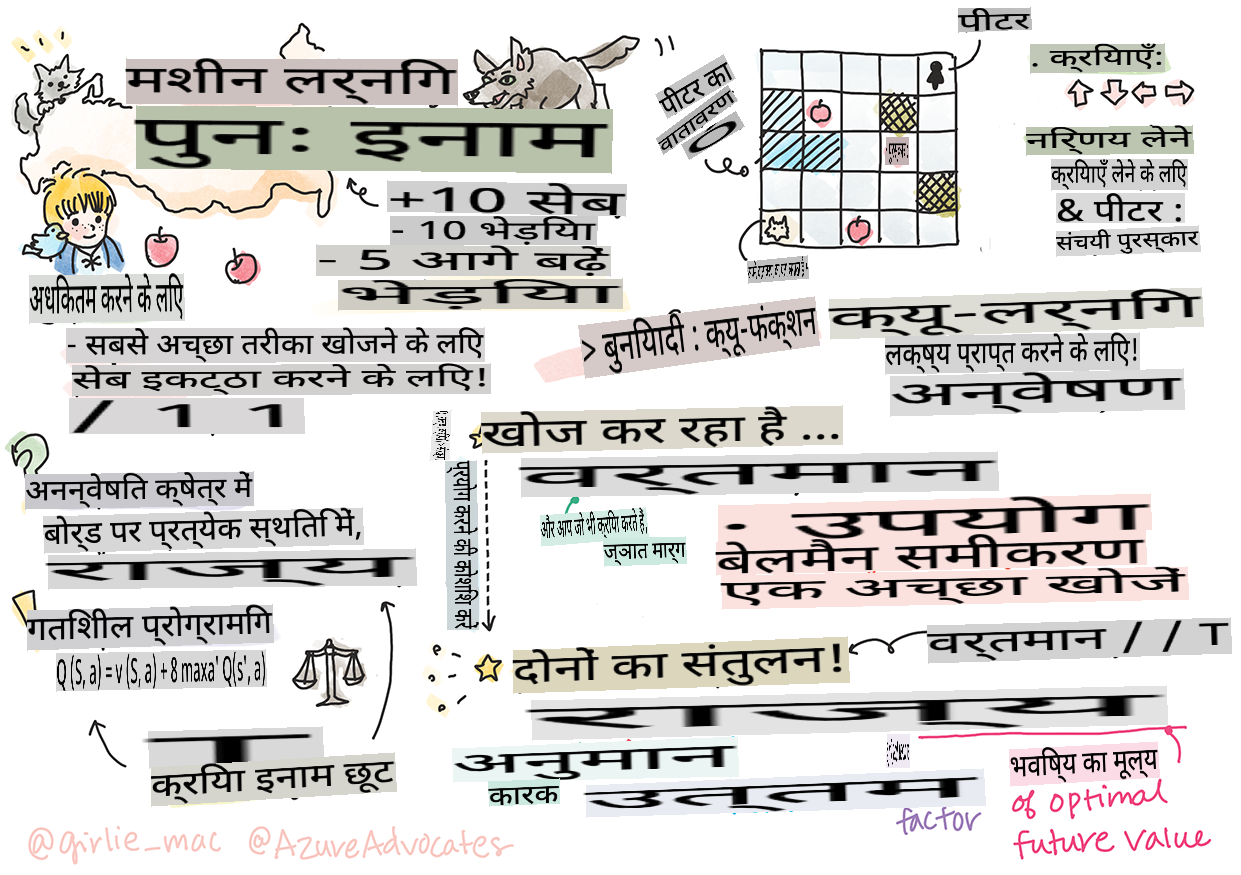 मशीन लर्नगि
पुनः इनाम
+10 सेब
- 10 भेड़यिा
- 5 आगे बढ़ें
भेड़यिा
अधकितम करने के लएि
- सबसे अच्छा तरीका खोजने के लएि
सेब इकट्ठा करने के लएि!
/ 1 1
पीटर का
वातावरण
पीटर
. क्रयिाएँ:
नरि्णय लेने
क्रयिाएँ लेने के लएि
& पीटर :
संचयी पुरस्कार
> बुनयिादी : क्यू-फंक्शन
क्यू-लर्नगि
लक्ष्य प्राप्त करने के लएि!
अन्वेषण
खोज कर रहा है ...
वर्तमान
और आप जो भी क्रयिा करते है,
ज्ञात मार्ग
प्रयोग करने की कोशशि करें
· उपयोग
बेलमैन समीकरण
एक अच्छा खोजें
अनन्वेषति क्षेत्र में
बोर्ड पर प्रत्येक स्थतिि में,
राज्य
गतशिील प्रोग्रामगि
Q (S, a) = v (S, a) + 8 maxa' Q(s', a)
T
क्रयिा इनाम छूट
दोनों का संतुलन!
वर्तमान / / T
राज्य
अनुमान
कारक
उत्तम
factor
भवषि्य का मूल्य
of optimal
future value
@girlie_mac @AzureAdvocates